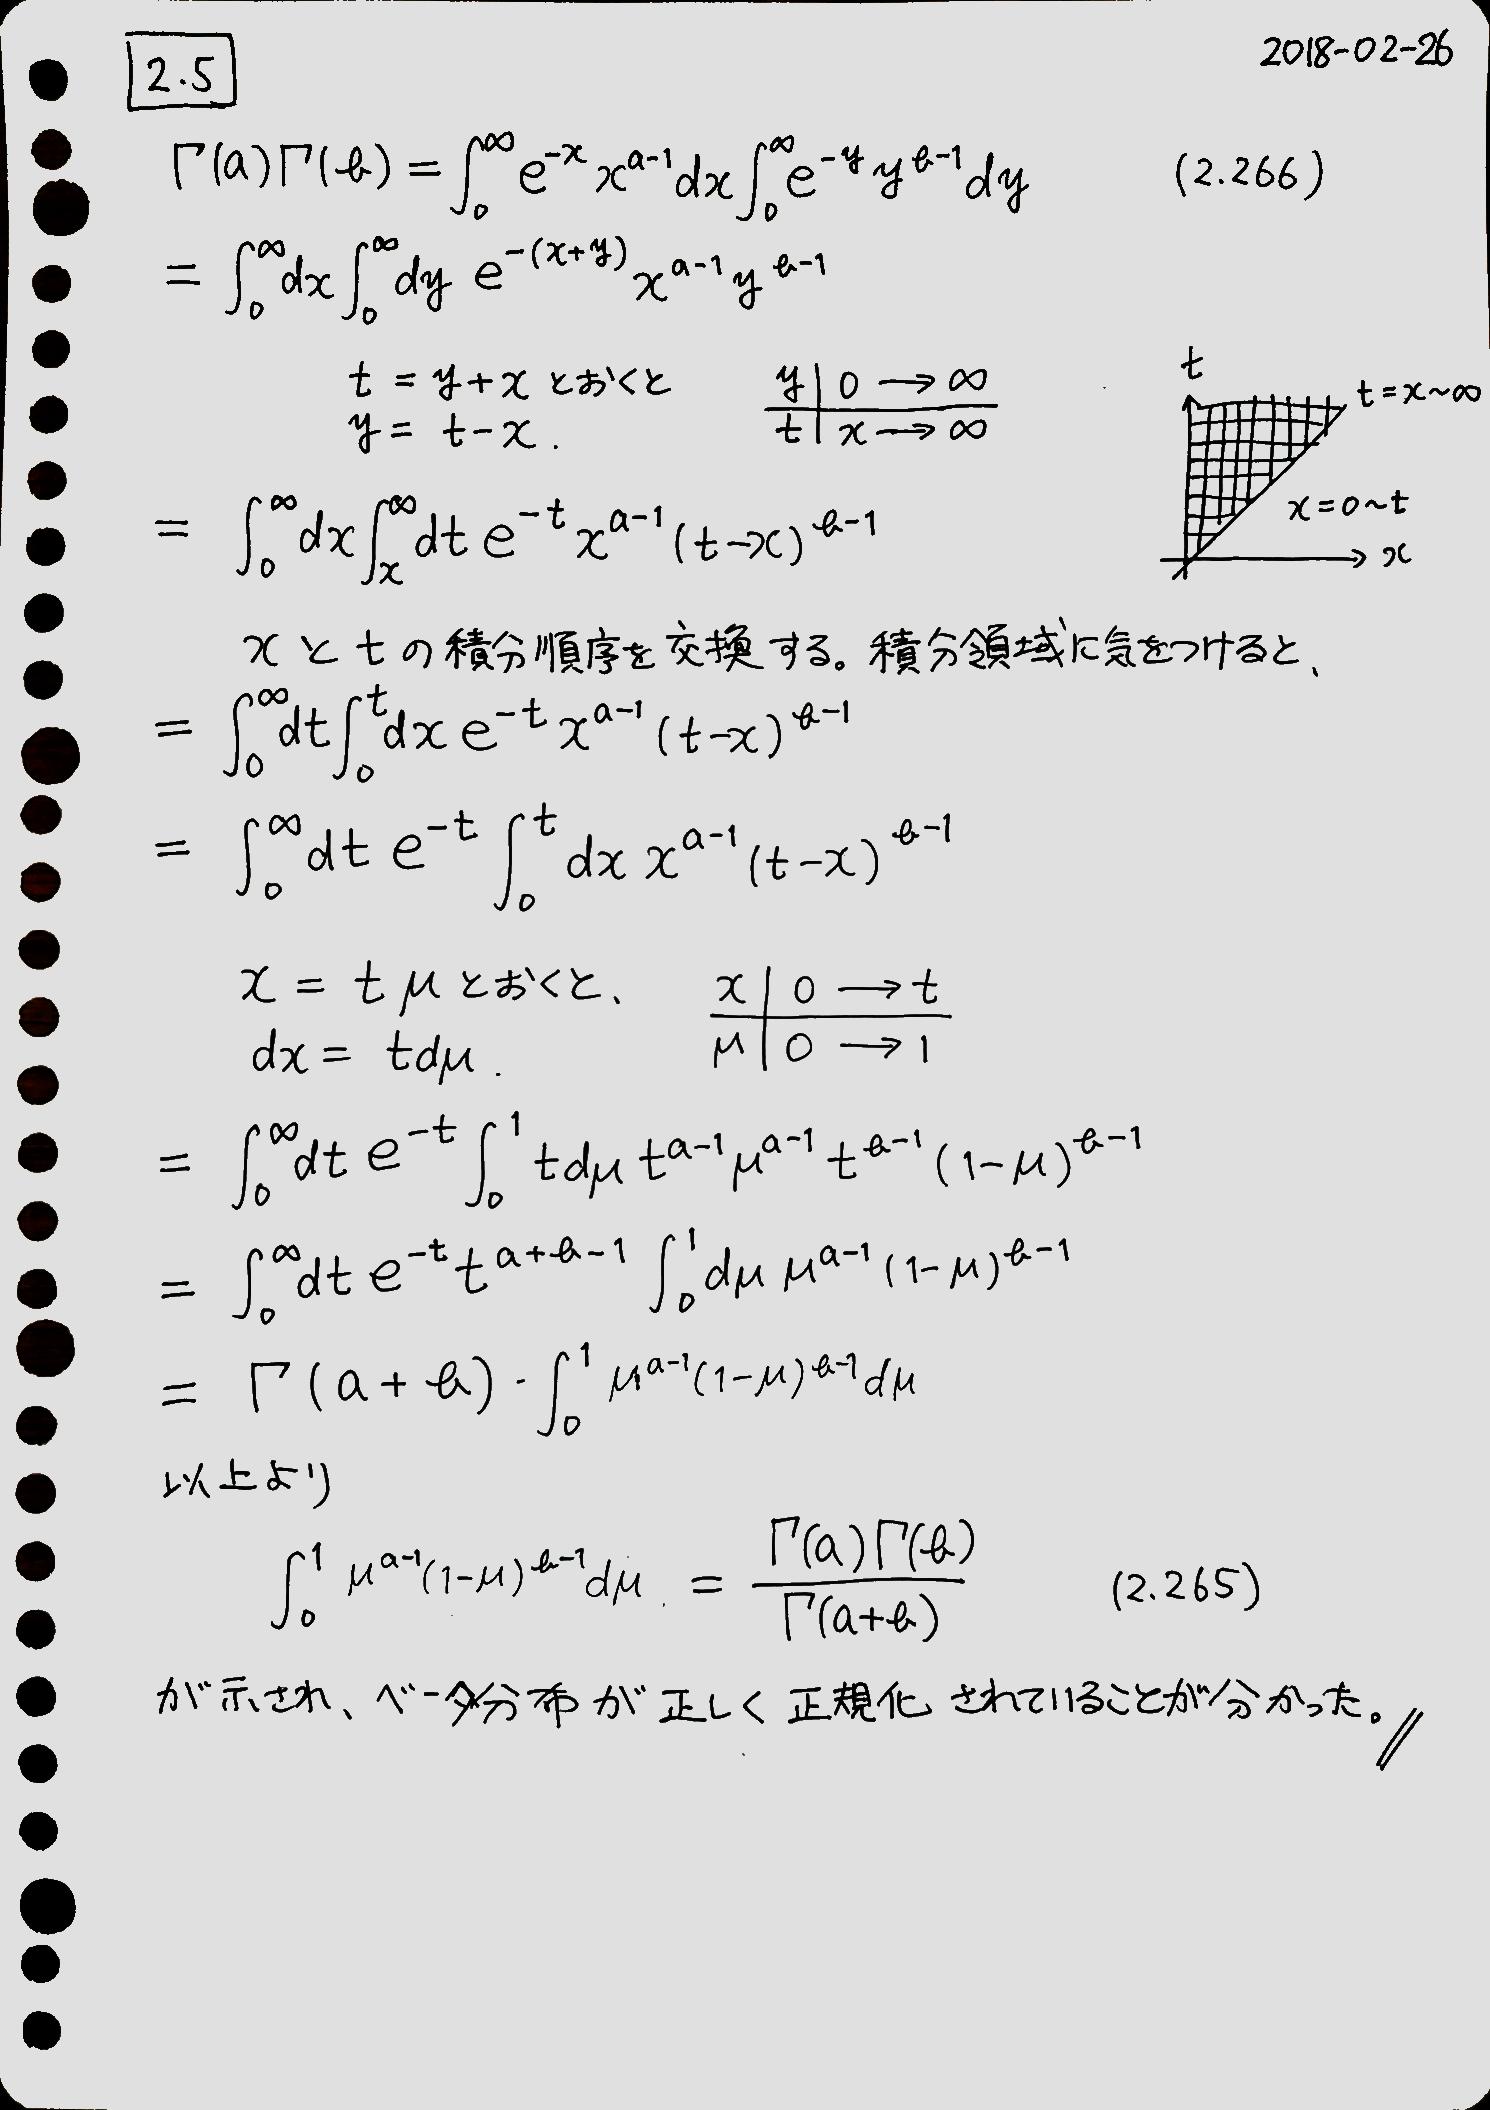 2.5
2018-02-26
Γ(a)Γ(b) = ∫₀^∞ e^{-x} x^{a-1} dx ∫₀^∞ e^{-y} y^{b-1} dy (2.266)
= ∫₀^∞ dx ∫₀^∞ dy e^{-(x+y)} x^{a-1} y^{b-1}
t = y+x とおくと y | 0 → ∞
y = t-x. t | x → ∞
t
t=x~∞
x=0~t
x
= ∫₀^∞ dx ∫_x^∞ dt e^{-t} x^{a-1} (t-x)^{b-1}
xとtの積分順序を交換する。積分領域に気をつけると、
= ∫₀^∞ dt ∫₀^t dx e^{-t} x^{a-1} (t-x)^{b-1}
= ∫₀^∞ dt e^{-t} ∫₀^t dx x^{a-1} (t-x)^{b-1}
x = tμ とおくと、 x | 0 → t
dx = tdμ. μ | 0 → 1
= ∫₀^∞ dt e^{-t} ∫₀^1 tdμ t^{a-1} μ^{a-1} t^{b-1} (1-μ)^{b-1}
= ∫₀^∞ dt e^{-t} t^{a+b-1} ∫₀^1 dμ μ^{a-1} (1-μ)^{b-1}
= Γ(a+b)・∫₀^1 μ^{a-1} (1-μ)^{b-1} dμ
以上より
∫₀^1 μ^{a-1} (1-μ)^{b-1} dμ = Γ(a)Γ(b) / Γ(a+b) (2.265)
が示され、ベータ分布が正しく正規化されていることが分かった。//